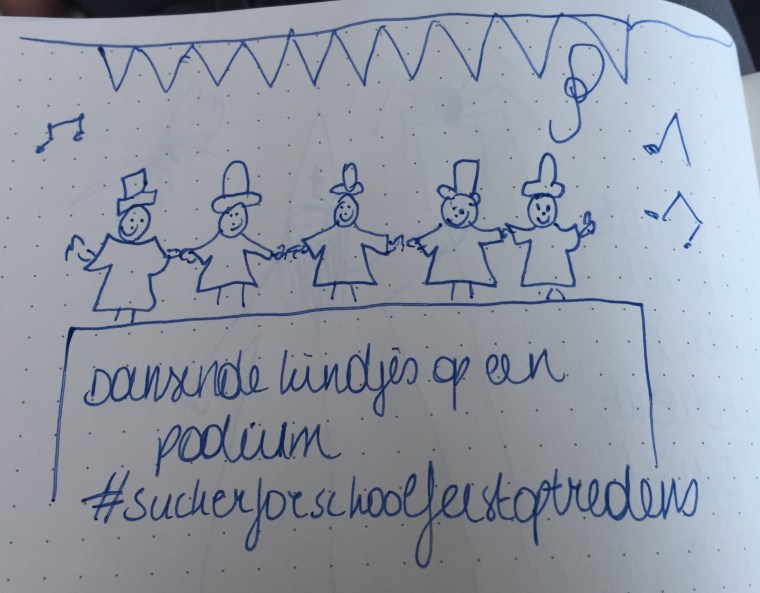 Dansende kindjes op een
podium
#suckerforschoolfeestoptredens